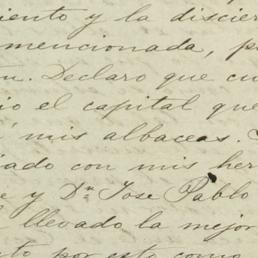 iento y la discier
mencionada, p
n. Declaro que cu
io el capital que
mis albaceas.
iado con mis her
e y Dn Jose Pablo
llevado la mejor
to por esto como